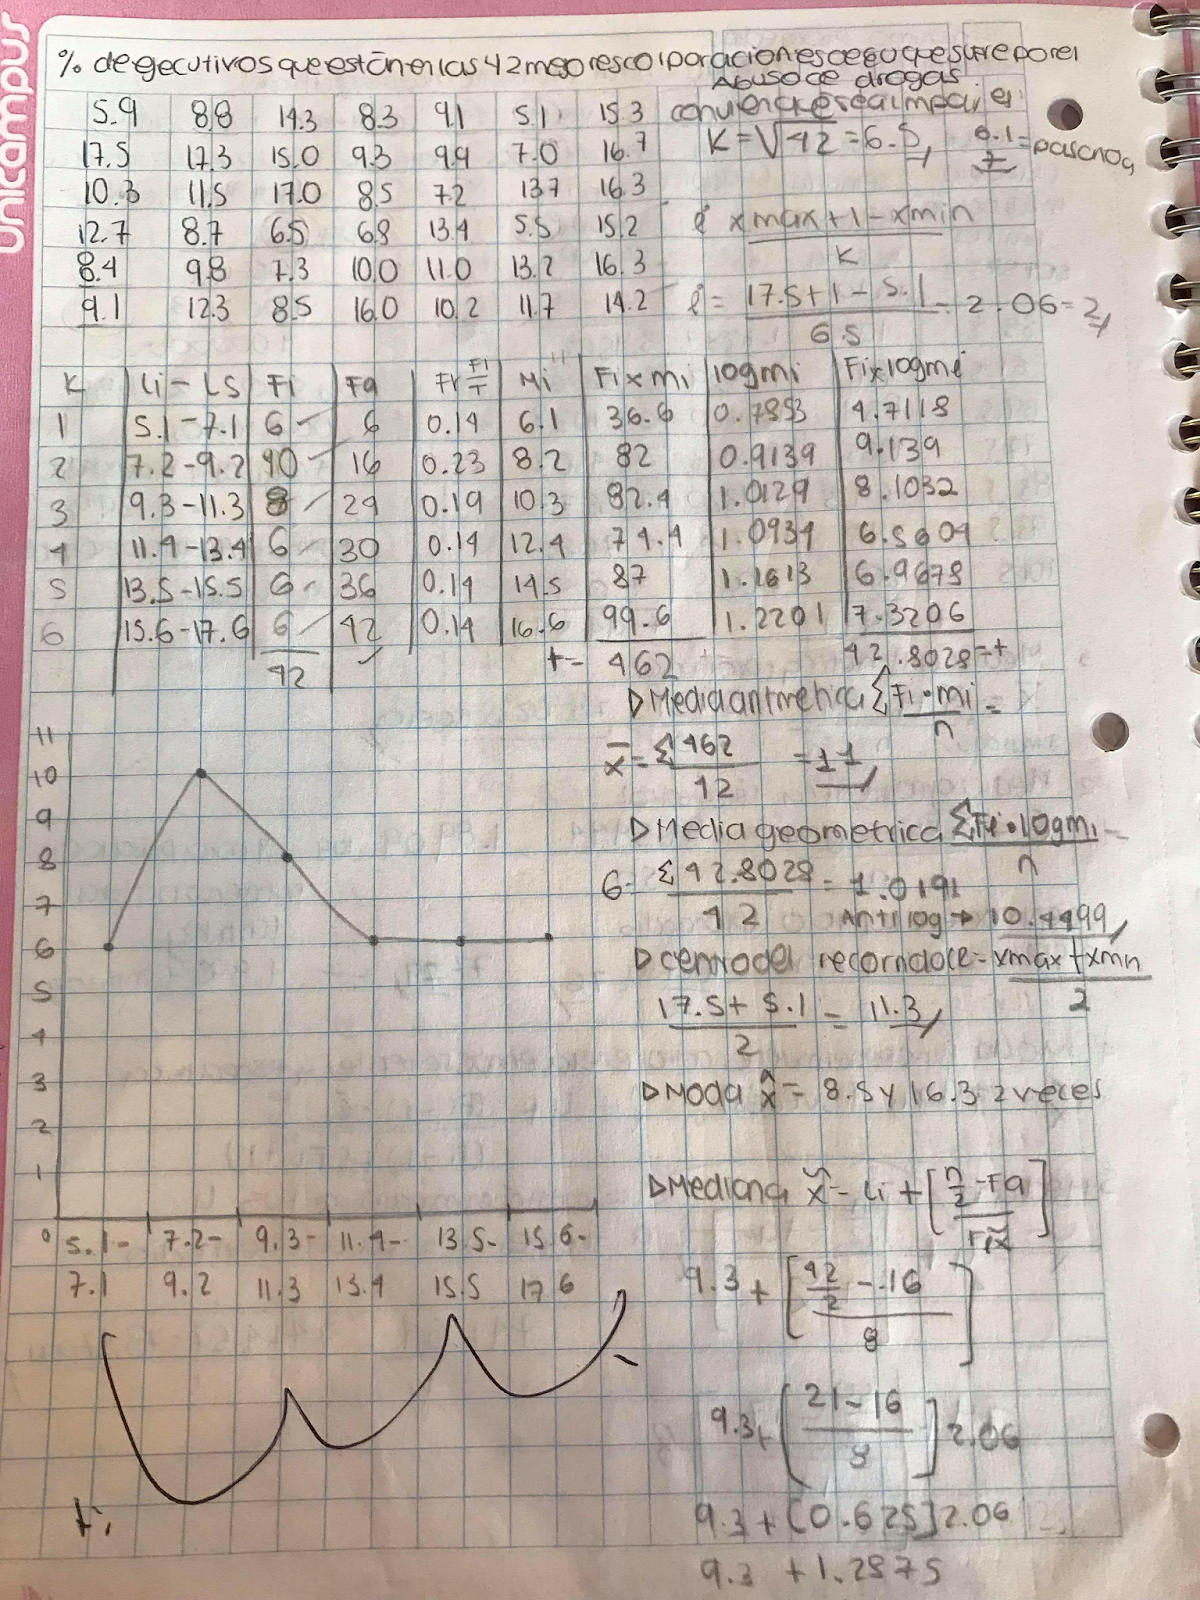 unicampus
% de ejecutivos que están en las 42 mejores corporaciones de eu que sufre por el
Abuso de drogas
5.9 8.8 14.3 8.3 9.1 5.1 15.3
conviene que sea impar el
17.5 17.3 15.0 9.3 9.9 7.0 16.7
K=√42 =6.5
0.1=
10.3 11.5 17.0 8.5 7.2 13.7 16.3
12.7 8.7 6.5 6.8 13.4 5.5 15.2
xmax+1-xmin
K
8.4 9.8 7.3 10.0 11.0 13.2 16.3
9.1 12.3 8.5 16.0 10.2 11.7 14.2
i= 17.5+1-5.1 = 2.06=2
6.5
K Li-LS Fi Fa Fr Fi/T Mi Fixmi logmi Fixlogmi
1 5.1-7.1 6 6 0.14 6.1 36.6 0.7853 4.7118
2 7.2-9.2 10 16 0.23 8.2 82 0.9139 9.139
3 9.3-11.3 8 24 0.19 10.3 82.4 1.0129 8.1032
4 11.4-13.4 6 30 0.14 12.4 74.4 1.0934 6.5604
5 13.5-15.5 6 36 0.14 14.5 87 1.1613 6.9678
6 15.6-17.6 6 42 0.14 16.6 99.6 1.2201 7.3206
42 t= 462 42.8028=t
Media aritmetica Σ Fi·mi =
n
x̄=Σ 462 = 11
42
Media geometrica ΣFi·logmi =
n
G= Σ 42.8028 = 1.0191
42 Antilog → 10.4499
centro del recorrido = xmax+xmn
2
17.5+5.1 = 11.3
2
Moda x̂= 8.5 y 16.3 2 veces
Mediana x̃= Li+[n/2 -Fa]
Fix̃
9.3+[42/2 -16]
8
9.3+[21-16]2.06
8
9.3+[0.625]2.06
9.3 +1.2875
11
10
9
8
7
6
5
4
3
2
1
0
5.1- 7.2- 9.3- 11.4- 13.5- 15.6-
7.1 9.2 11.3 13.4 15.5 17.6